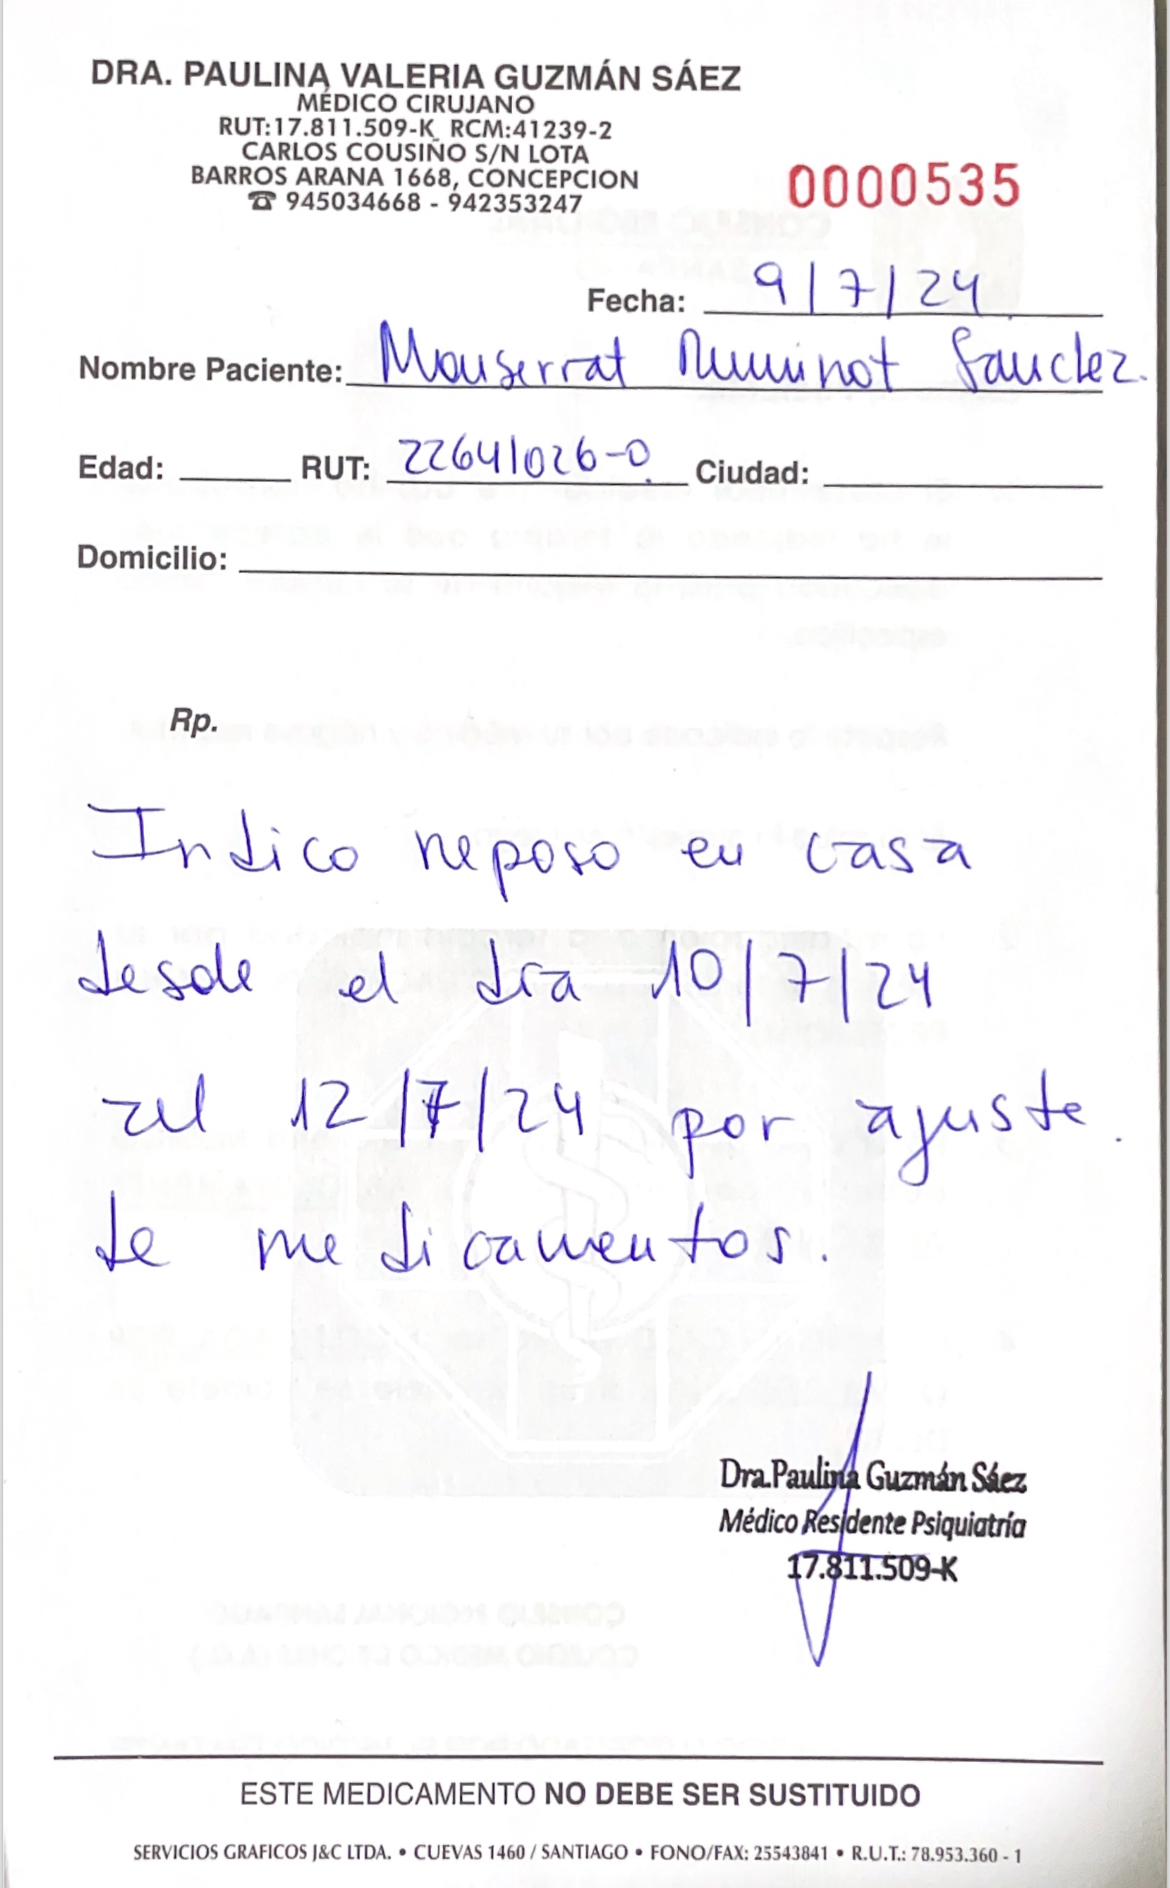 DRA. PAULINA VALERIA GUZMÁN SÁEZ
MÉDICO CIRUJANO
RUT:17.811.509-K RCM:41239-2
CARLOS COUSIÑO S/N LOTA
BARROS ARANA 1668, CONCEPCION
☎ 945034668 - 942353247
0000535
Fecha: 9/7/24
Nombre Paciente: Monserrat Sanchez.
Edad: RUT: 22641026-0 Ciudad:
Domicilio:
Rp.
Indico reposo en casa
desde el dia 10/7/24
al 12/7/24 por ajuste
de medicamentos.
Dra.Paulina Guzmán Sáez
Médico Residente Psiquiatría
17.811.509-K
ESTE MEDICAMENTO NO DEBE SER SUSTITUIDO
SERVICIOS GRAFICOS J&C LTDA. • CUEVAS 1460 / SANTIAGO • FONO/FAX: 25543841 • R.U.T.: 78.953.360 - 1